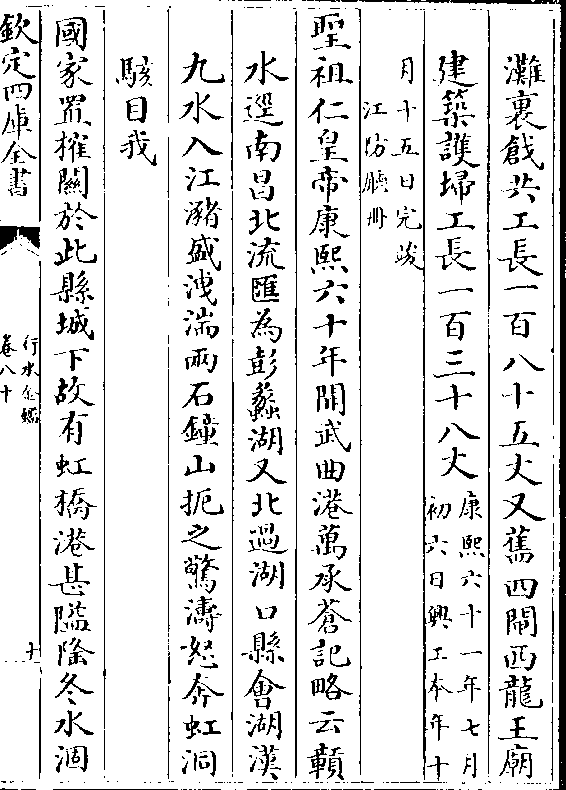 灘裏戧共工長一百八十五丈又舊四閘西龍王廟
建築護埽工長一百三十八丈康熙六十一年七月
初六日興工本年十
月十五日完竣
江防廳冊
聖祖仁皇帝康熙六十年開武曲港萬承蒼記略云贑
水逕南昌北流匯為彭蠡湖又北過湖口縣會湖漢
九水入江瀦盛洩湍兩石鐘山扼之驚濤怒奔虹洞
駭目我
國家置榷關於此縣城下故有虹橋港甚隘隆冬水涸
欽定四庫全書
行水金鑑
卷八十
十